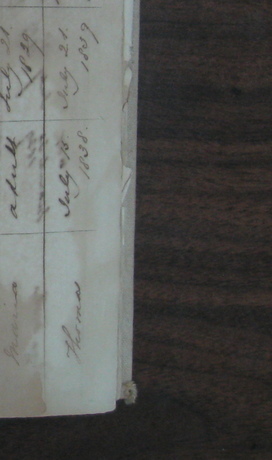 Maria adult July 21.
1839
Thomas July 15. July 21.
1838. 1839